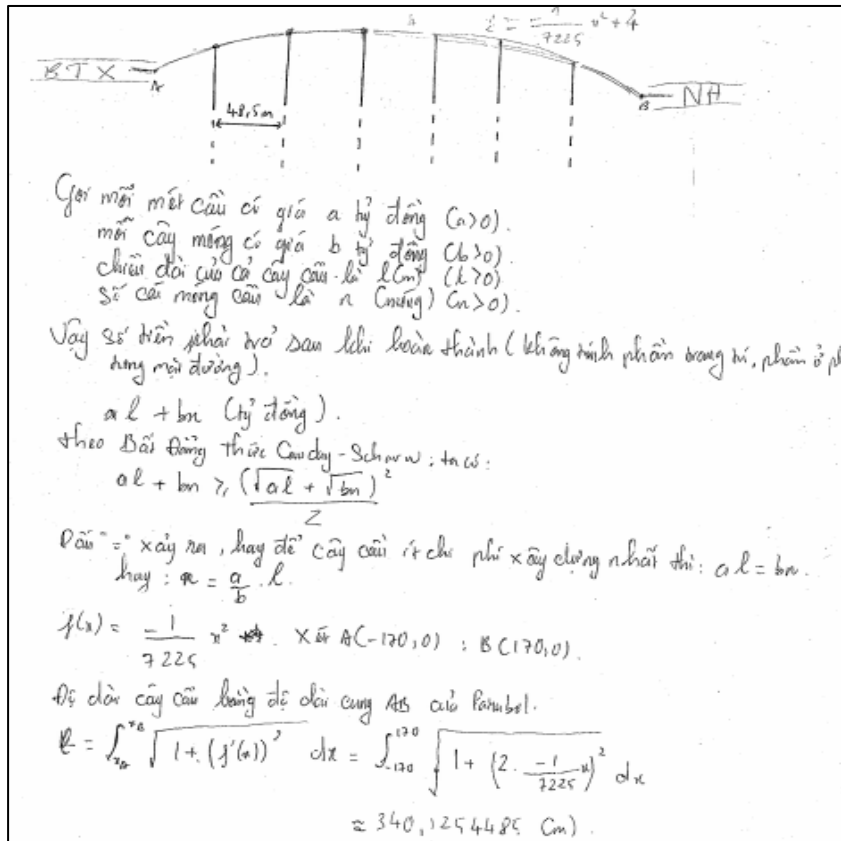 z = -1/7225 x² + 4
BTX
A
48,5m
B
NH
Gọi mỗi mét cầu có giá a tỷ đồng (a>0).
mỗi cây móng có giá b tỷ đồng (b>0)
chiều dài của cả cây cầu là l(m) (l>0)
số cái móng cầu là n (móng) (n>0).
Vậy số tiền phải trả sau khi hoàn thành (không tính phần trang trí, phần ở ph
từng mặt đường).
al + bn (tỷ đồng).
theo Bất Đẳng thức Cauchy-Schwarz: ta có:
al + bn ≥ (√al + √bn)²/2
Dấu "=" xảy ra, hay để cây cầu ít chi phí xây dựng nhất thì: al = bn.
hay: n = a/b . l.
f(x) = -1/7225 x² Xét A(-170,0) ; B(170,0).
Độ dài cây cầu bằng độ dài cung AB của Parabol.
l = ∫_{x_A}^{x_B} √(1 + (f'(x))²) dx = ∫_{-170}^{170} √(1 + (2. -1/7225 x)²) dx
≈ 340,1254485 (m).